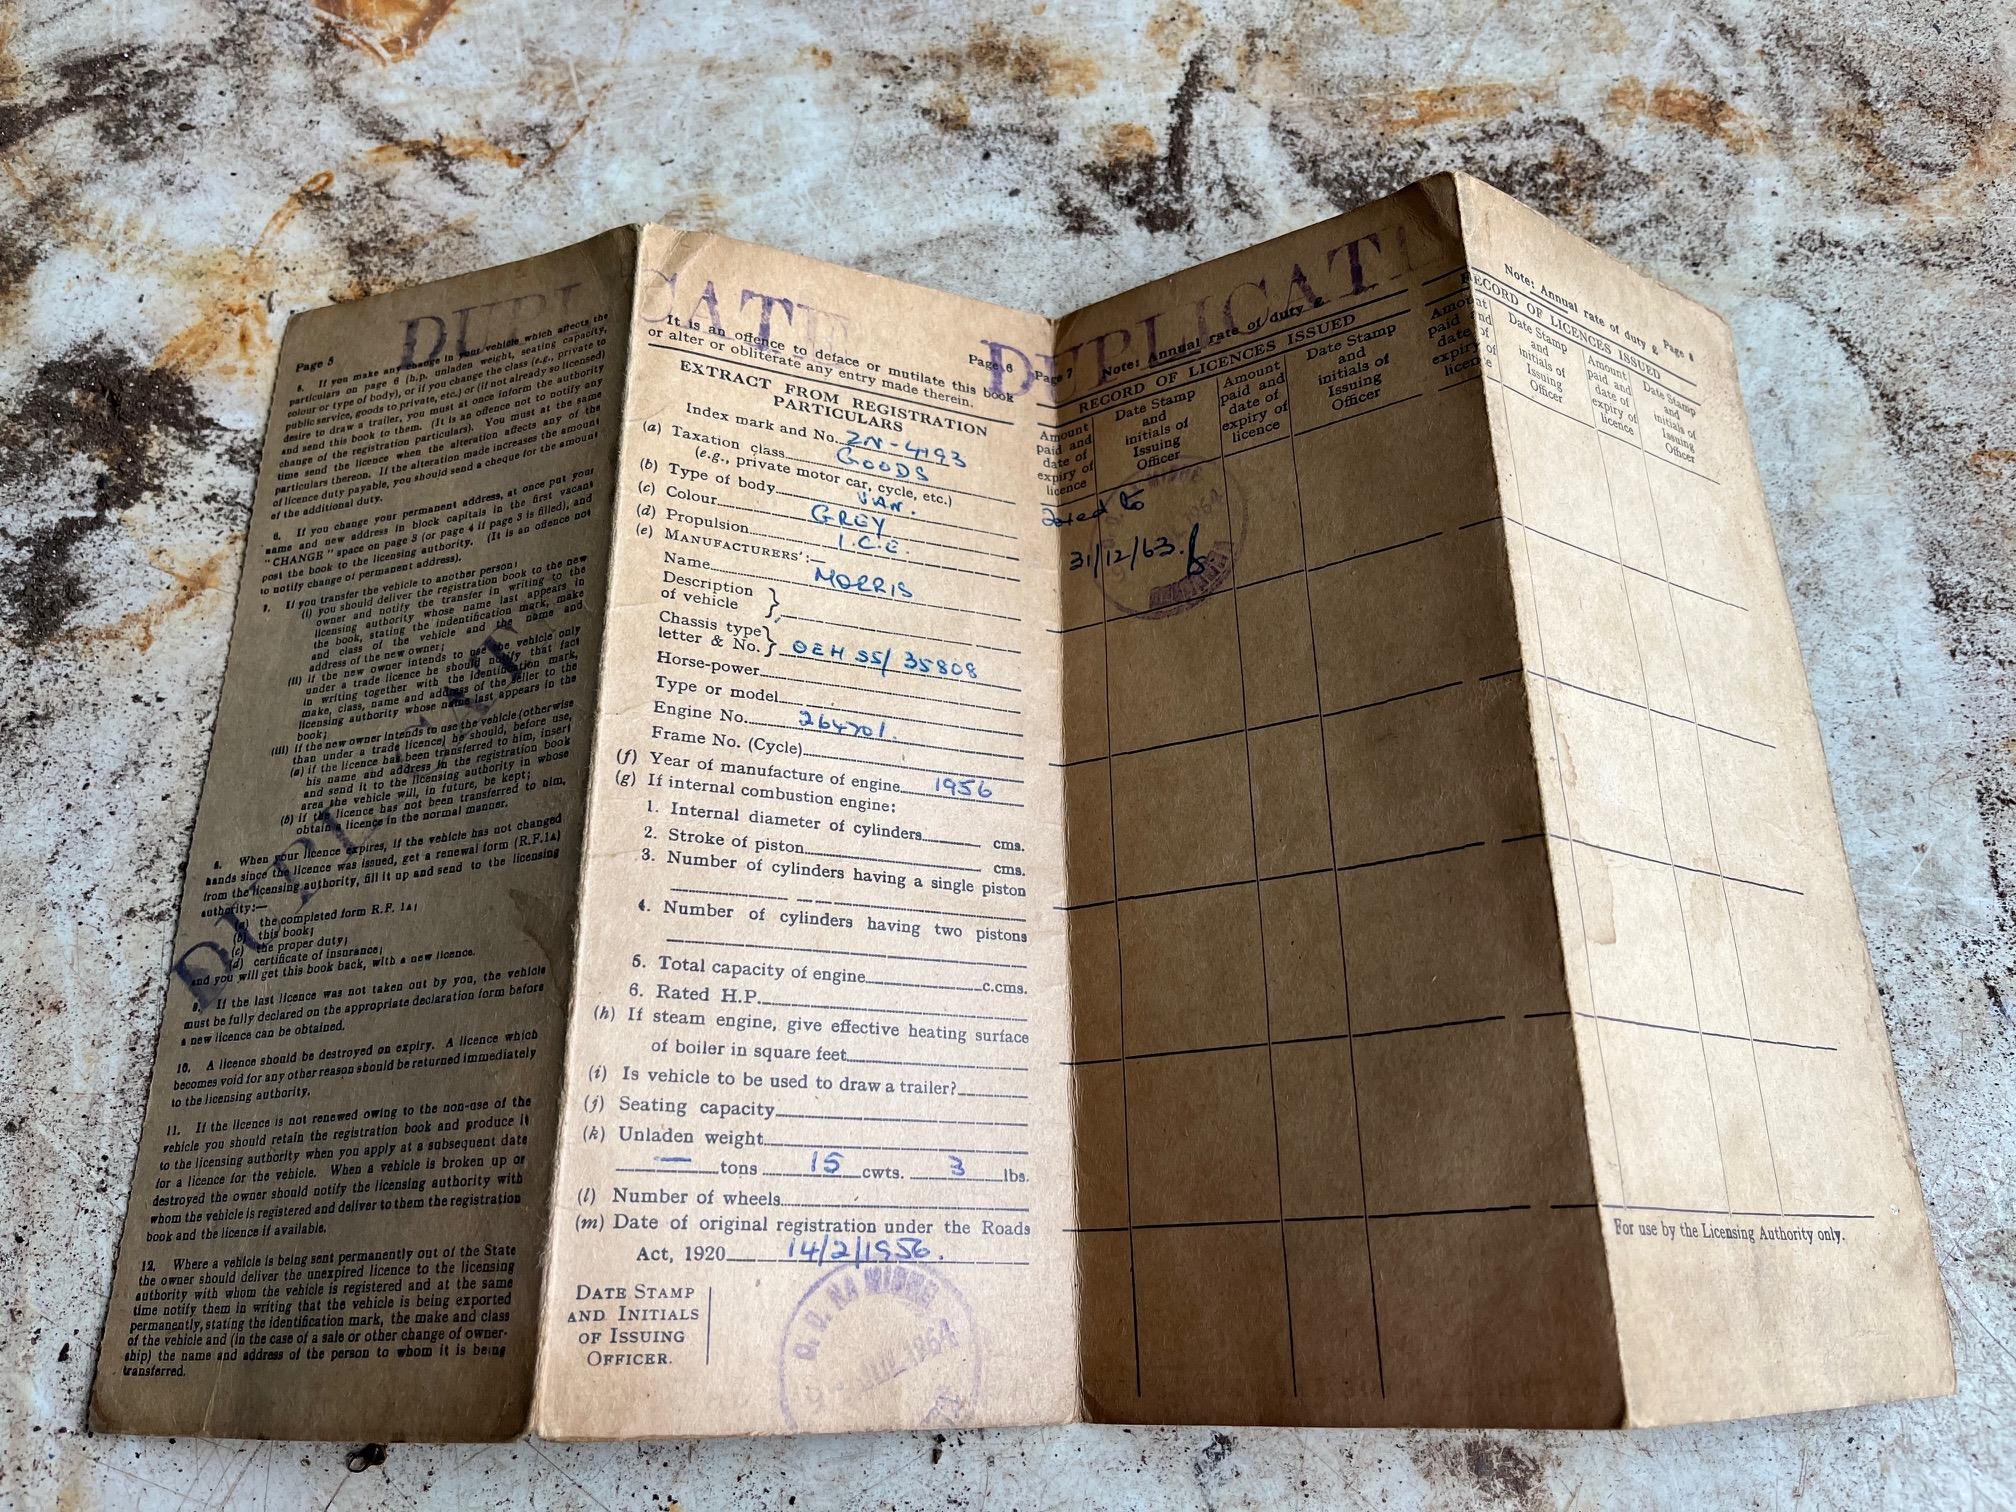 DUPLICATE
Page 5
5. If you make any change in your vehicle which affects the
particulars on page 6 (h.p. unladen weight, seating capacity,
colour or type of body), or if you change the class (e.g., private to
public service, goods to private, etc.) or (if not already so licensed)
desire to draw a trailer, you must at once inform the authority
and send this book to them. (It is an offence not to notify any
change of the registration particulars). You must at the same
time send the licence when the alteration affects any of the
particulars thereon. If the alteration made increases the amount
of licence duty payable, you should send a cheque for the amount
of the additional duty.
6. If you change your permanent address, at once put your
name and new address in block capitals in the first vacant
"CHANGE" space on page 3 (or page 4 if page 3 is filled), and
post the book to the licensing authority. (It is an offence not
to notify change of permanent address).
7. If you transfer the vehicle to another person:
(i) you should deliver the registration book to the new
owner and notify the transfer in writing to the
licensing authority whose name last appears in
the book, stating the indentification mark, make
and class of the vehicle and the name and
address of the new owner;
(ii) if the new owner intends to use the vehicle only
under a trade licence he should notify that fact
in writing together with the identification mark,
make, class, name and address of the seller to the
licensing authority whose name last appears in the
book;
(iii) if the new owner intends to use the vehicle (otherwise
than under a trade licence) he should, before use,
(a) if the licence has been transferred to him, insert
his name and address in the registration book
and send it to the licensing authority in whose
area the vehicle will, in future, be kept;
(b) if the licence has not been transferred to him,
obtain a licence in the normal manner.
8. When your licence expires, if the vehicle has not changed
hands since the licence was issued, get a renewal form (R.F.1A)
from the licensing authority, fill it up and send to the licensing
authority:—
(a) the completed form R.F. 1A;
(b) this book;
(c) the proper duty;
(d) certificate of insurance;
and you will get this book back, with a new licence.
9. If the last licence was not taken out by you, the vehicle
must be fully declared on the appropriate declaration form before
a new licence can be obtained.
10. A licence should be destroyed on expiry. A licence which
becomes void for any other reason should be returned immediately
to the licensing authority.
11. If the licence is not renewed owing to the non-use of the
vehicle you should retain the registration book and produce it
to the licensing authority when you apply at a subsequent date
for a licence for the vehicle. When a vehicle is broken up or
destroyed the owner should notify the licensing authority with
whom the vehicle is registered and deliver to them the registration
book and the licence if available.
12. Where a vehicle is being sent permanently out of the State
the owner should deliver the unexpired licence to the licensing
authority with whom the vehicle is registered and at the same
time notify them in writing that the vehicle is being exported
permanently, stating the identification mark, the make and class
of the vehicle and (in the case of a sale or other change of owner-
ship) the name and address of the person to whom it is being
transferred.
DUPLICAT
Page 6
It is an offence to deface or mutilate this book
or alter or obliterate any entry made therein.
EXTRACT FROM REGISTRATION
PARTICULARS
Index mark and No. ZN-4193
(a) Taxation class GOODS
(e.g., private motor car, cycle, etc.)
(b) Type of body VAN.
(c) Colour GREY
(d) Propulsion I.C.E.
(e) MANUFACTURERS':—
Name MORRIS
Description
of vehicle
Chassis type
letter & No. OEH 55/ 35808
Horse-power
Type or model
Engine No. 264701.
Frame No. (Cycle)
(f) Year of manufacture of engine 1956
(g) If internal combustion engine:
1. Internal diameter of cylinders cms.
2. Stroke of piston cms.
3. Number of cylinders having a single piston
4. Number of cylinders having two pistons
5. Total capacity of engine c.cms.
6. Rated H.P.
(h) If steam engine, give effective heating surface
of boiler in square feet
(i) Is vehicle to be used to draw a trailer?
(j) Seating capacity
(k) Unladen weight
— tons 15 cwts. 3 lbs.
(l) Number of wheels
(m) Date of original registration under the Roads
Act, 1920 14/2/1956.
DATE STAMP
AND INITIALS
OF ISSUING
OFFICER.
1964
DUPLICAT
Page 7
Note: Annual rate of duty £
RECORD OF LICENCES ISSUED
Amount
paid and
date of
expiry of
licence
Date Stamp
and
initials of
Issuing
Officer
Amount
paid and
date of
expiry of
licence
Date Stamp
and
initials of
Issuing
Officer
to
31/12/63.
1964
Page 8
Note: Annual rate of duty £
RECORD OF LICENCES ISSUED
Amount
paid and
date of
expiry of
licence
Date Stamp
and
initials of
Issuing
Officer
Amount
paid and
date of
expiry of
licence
Date Stamp
and
initials of
Issuing
Officer
For use by the Licensing Authority only.